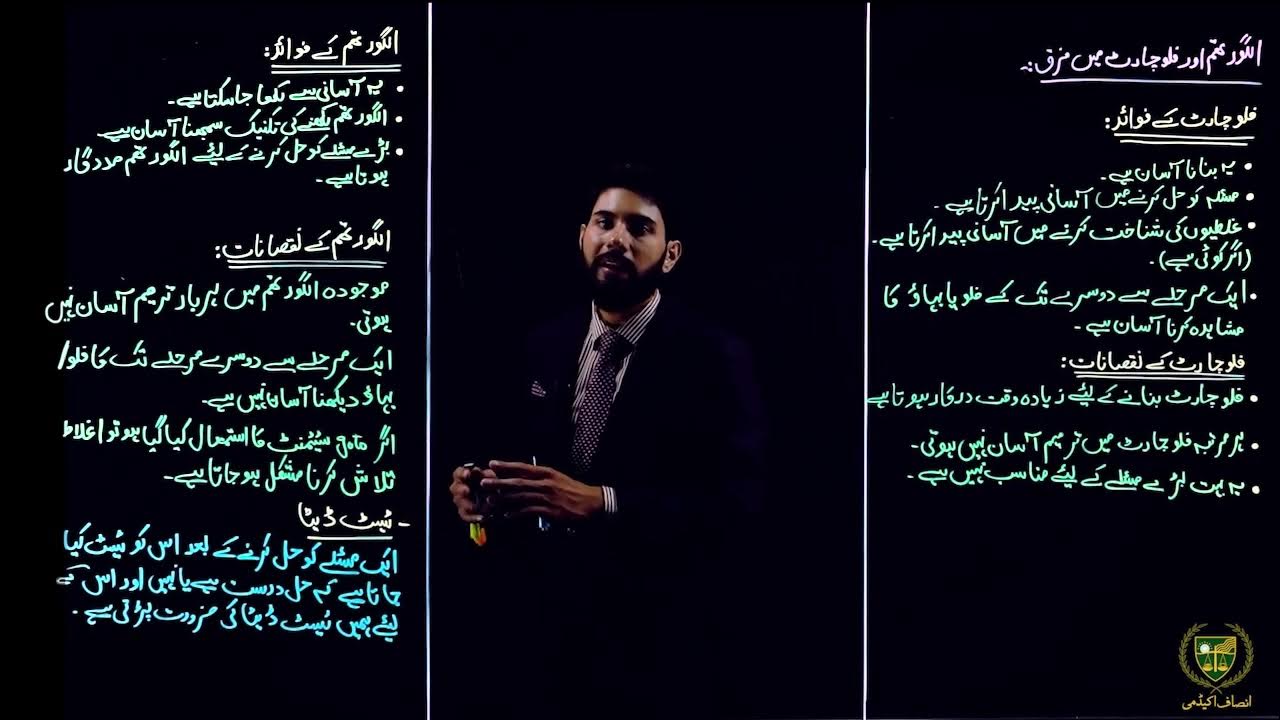 الگورتھم اور فلو چارٹ میں فرق:۔
فلو چارٹ کے فوائد:
• یہ بنانا آسان ہے۔
• مسئلہ کو حل کرنے میں آسانی پیدا کرتا ہے۔
• غلطیوں کی شناخت کرنے میں آسانی پیدا کرتا ہے۔
(اگر کوئی ہے)۔
• ایک مرحلے سے دوسرے تک کے فلو یا بہاؤ کا
مشاہدہ کرنا آسان ہے۔
فلو چارٹ کے نقصانات:
• فلو چارٹ بنانے کے لیئے زیادہ وقت درکار ہوتا ہے
• ہر مرتبہ فلو چارٹ میں ترمیم آسان نہیں ہوتی۔
• یہ بہت بڑے مسئلے کے لیئے مناسب نہیں ہے۔
الگورتھم کے فوائد:
• یہ آسانی سے لکھا جا سکتا ہے۔
• الگورتھم لکھنے کی تکنیک سمجھنا آسان ہے
• بڑے مسئلے کو حل کرنے کے لیئے الگورتھم مددگار
ہوتا ہے۔
الگورتھم کے نقصانات:
موجودہ الگورتھم میں ہر بار ترمیم آسان نہیں
ہوتی۔
ایک مرحلے سے دوسرے مرحلے تک کا فلو/
بہاؤ دیکھنا آسان نہیں ہے۔
اگر goto سٹیٹمنٹ کا استعمال کیا گیا ہو تو اغلاط
تلاش کرنا مشکل ہو جاتا ہے۔
- ٹیسٹ ڈیٹا
ایک مسئلے کو حل کرنے کے بعد اس کو ٹیسٹ کیا
جاتا ہے کہ حل درست ہے یا نہیں اور اس کے
لیئے ہمیں ٹیسٹ ڈیٹا کی ضرورت پڑتی ہے۔
انصاف اکیڈمی